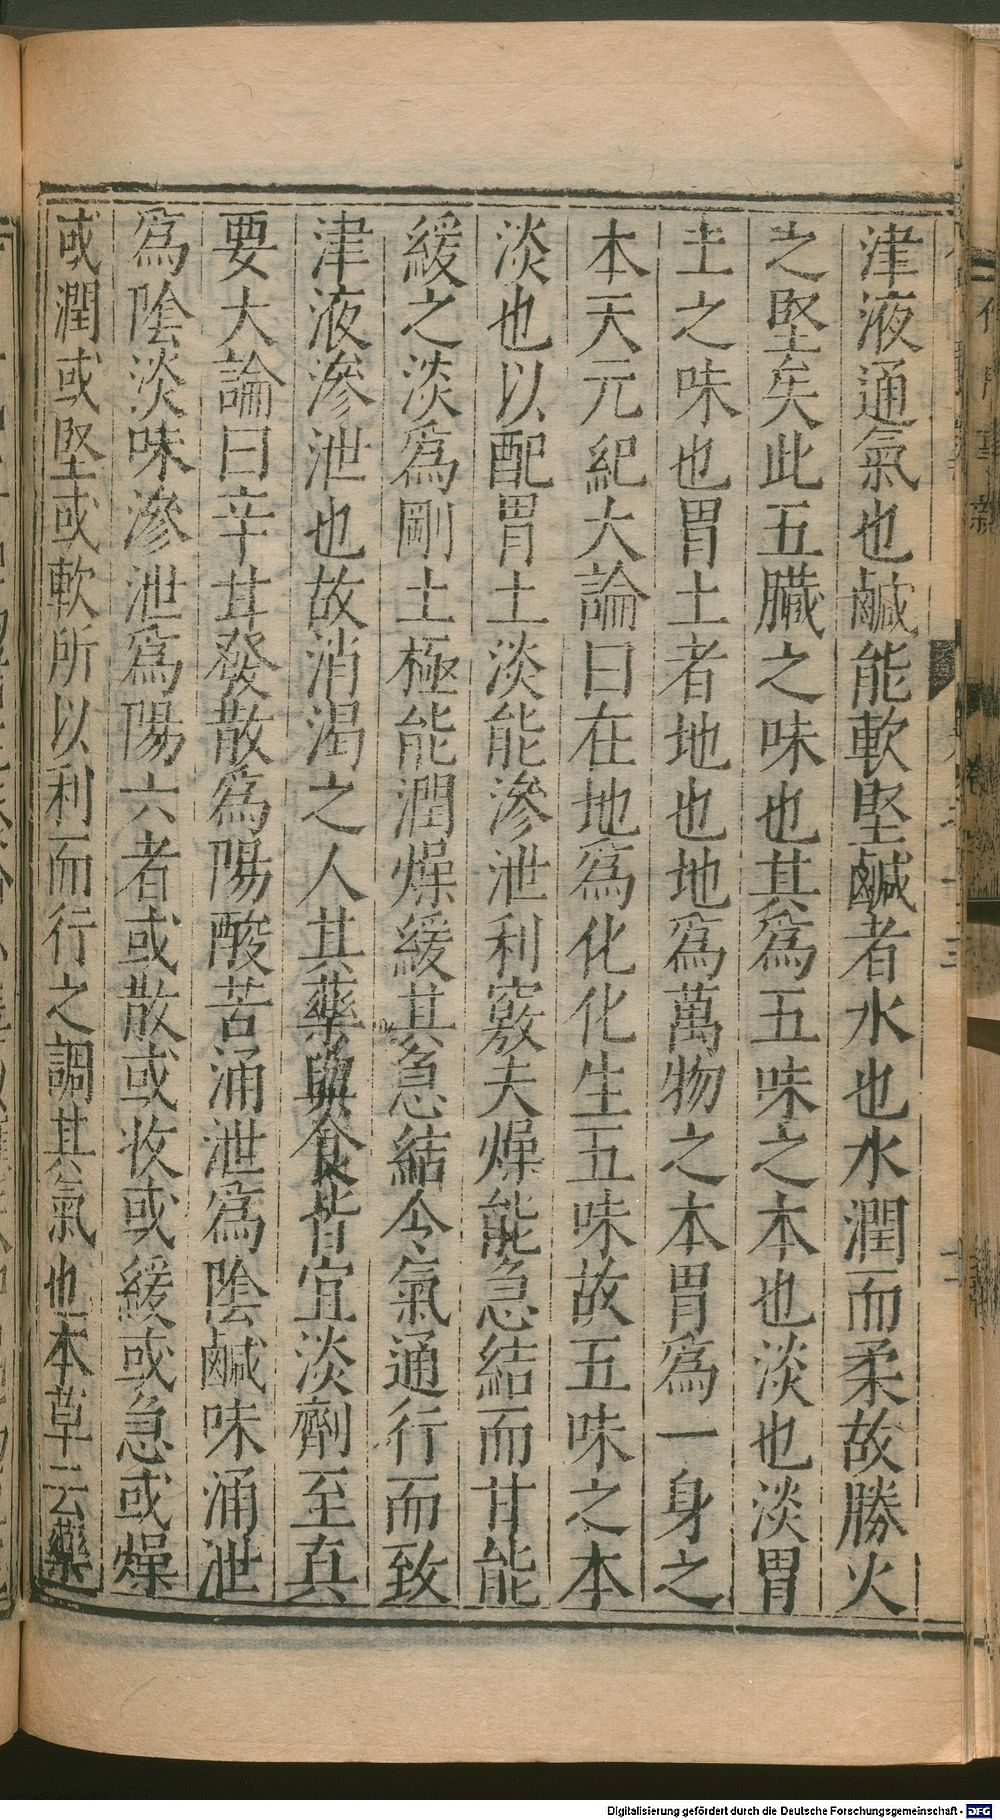 津液通氣也鹹能軟堅鹹者水也水潤而柔故勝火
之堅矣此五臟之味也其爲五味之本也淡也淡胃
土之味也胃土者地也地爲萬物之本胃爲一身之
本天元紀大論曰在地爲化化生五味故五味之本
淡也以配胃土淡能滲泄利竅夫燥能急結而甘能
緩之淡爲剛土極能潤燥緩其急結令氣通行而致
津液滲泄也故消渴之人其藥與食皆宜淡劑至真
要大論曰辛甘發散爲陽酸苦涌泄爲陰鹹味涌泄
爲陰淡味滲泄爲陽六者或散或收或緩或急或燥
或潤或堅或軟所以利而行之調其氣也本草云藥
Digitalisierung gefördert durch die Deutsche Forschungsgemeinschaft - DFG